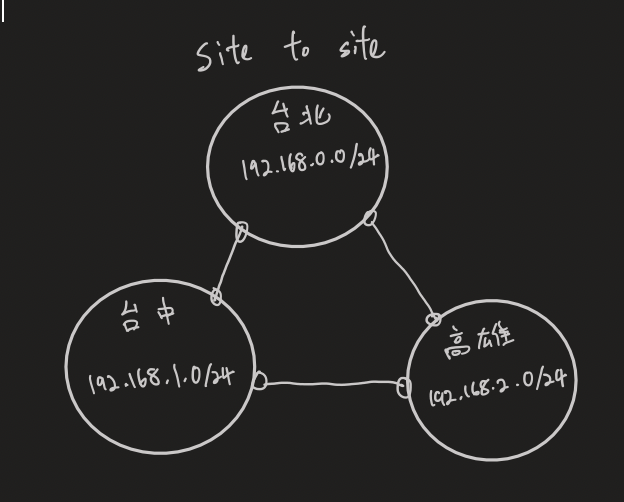 Site to site
台北
192.168.0.0/24
台中
192.168.1.0/24
高雄
192.168.2.0/24